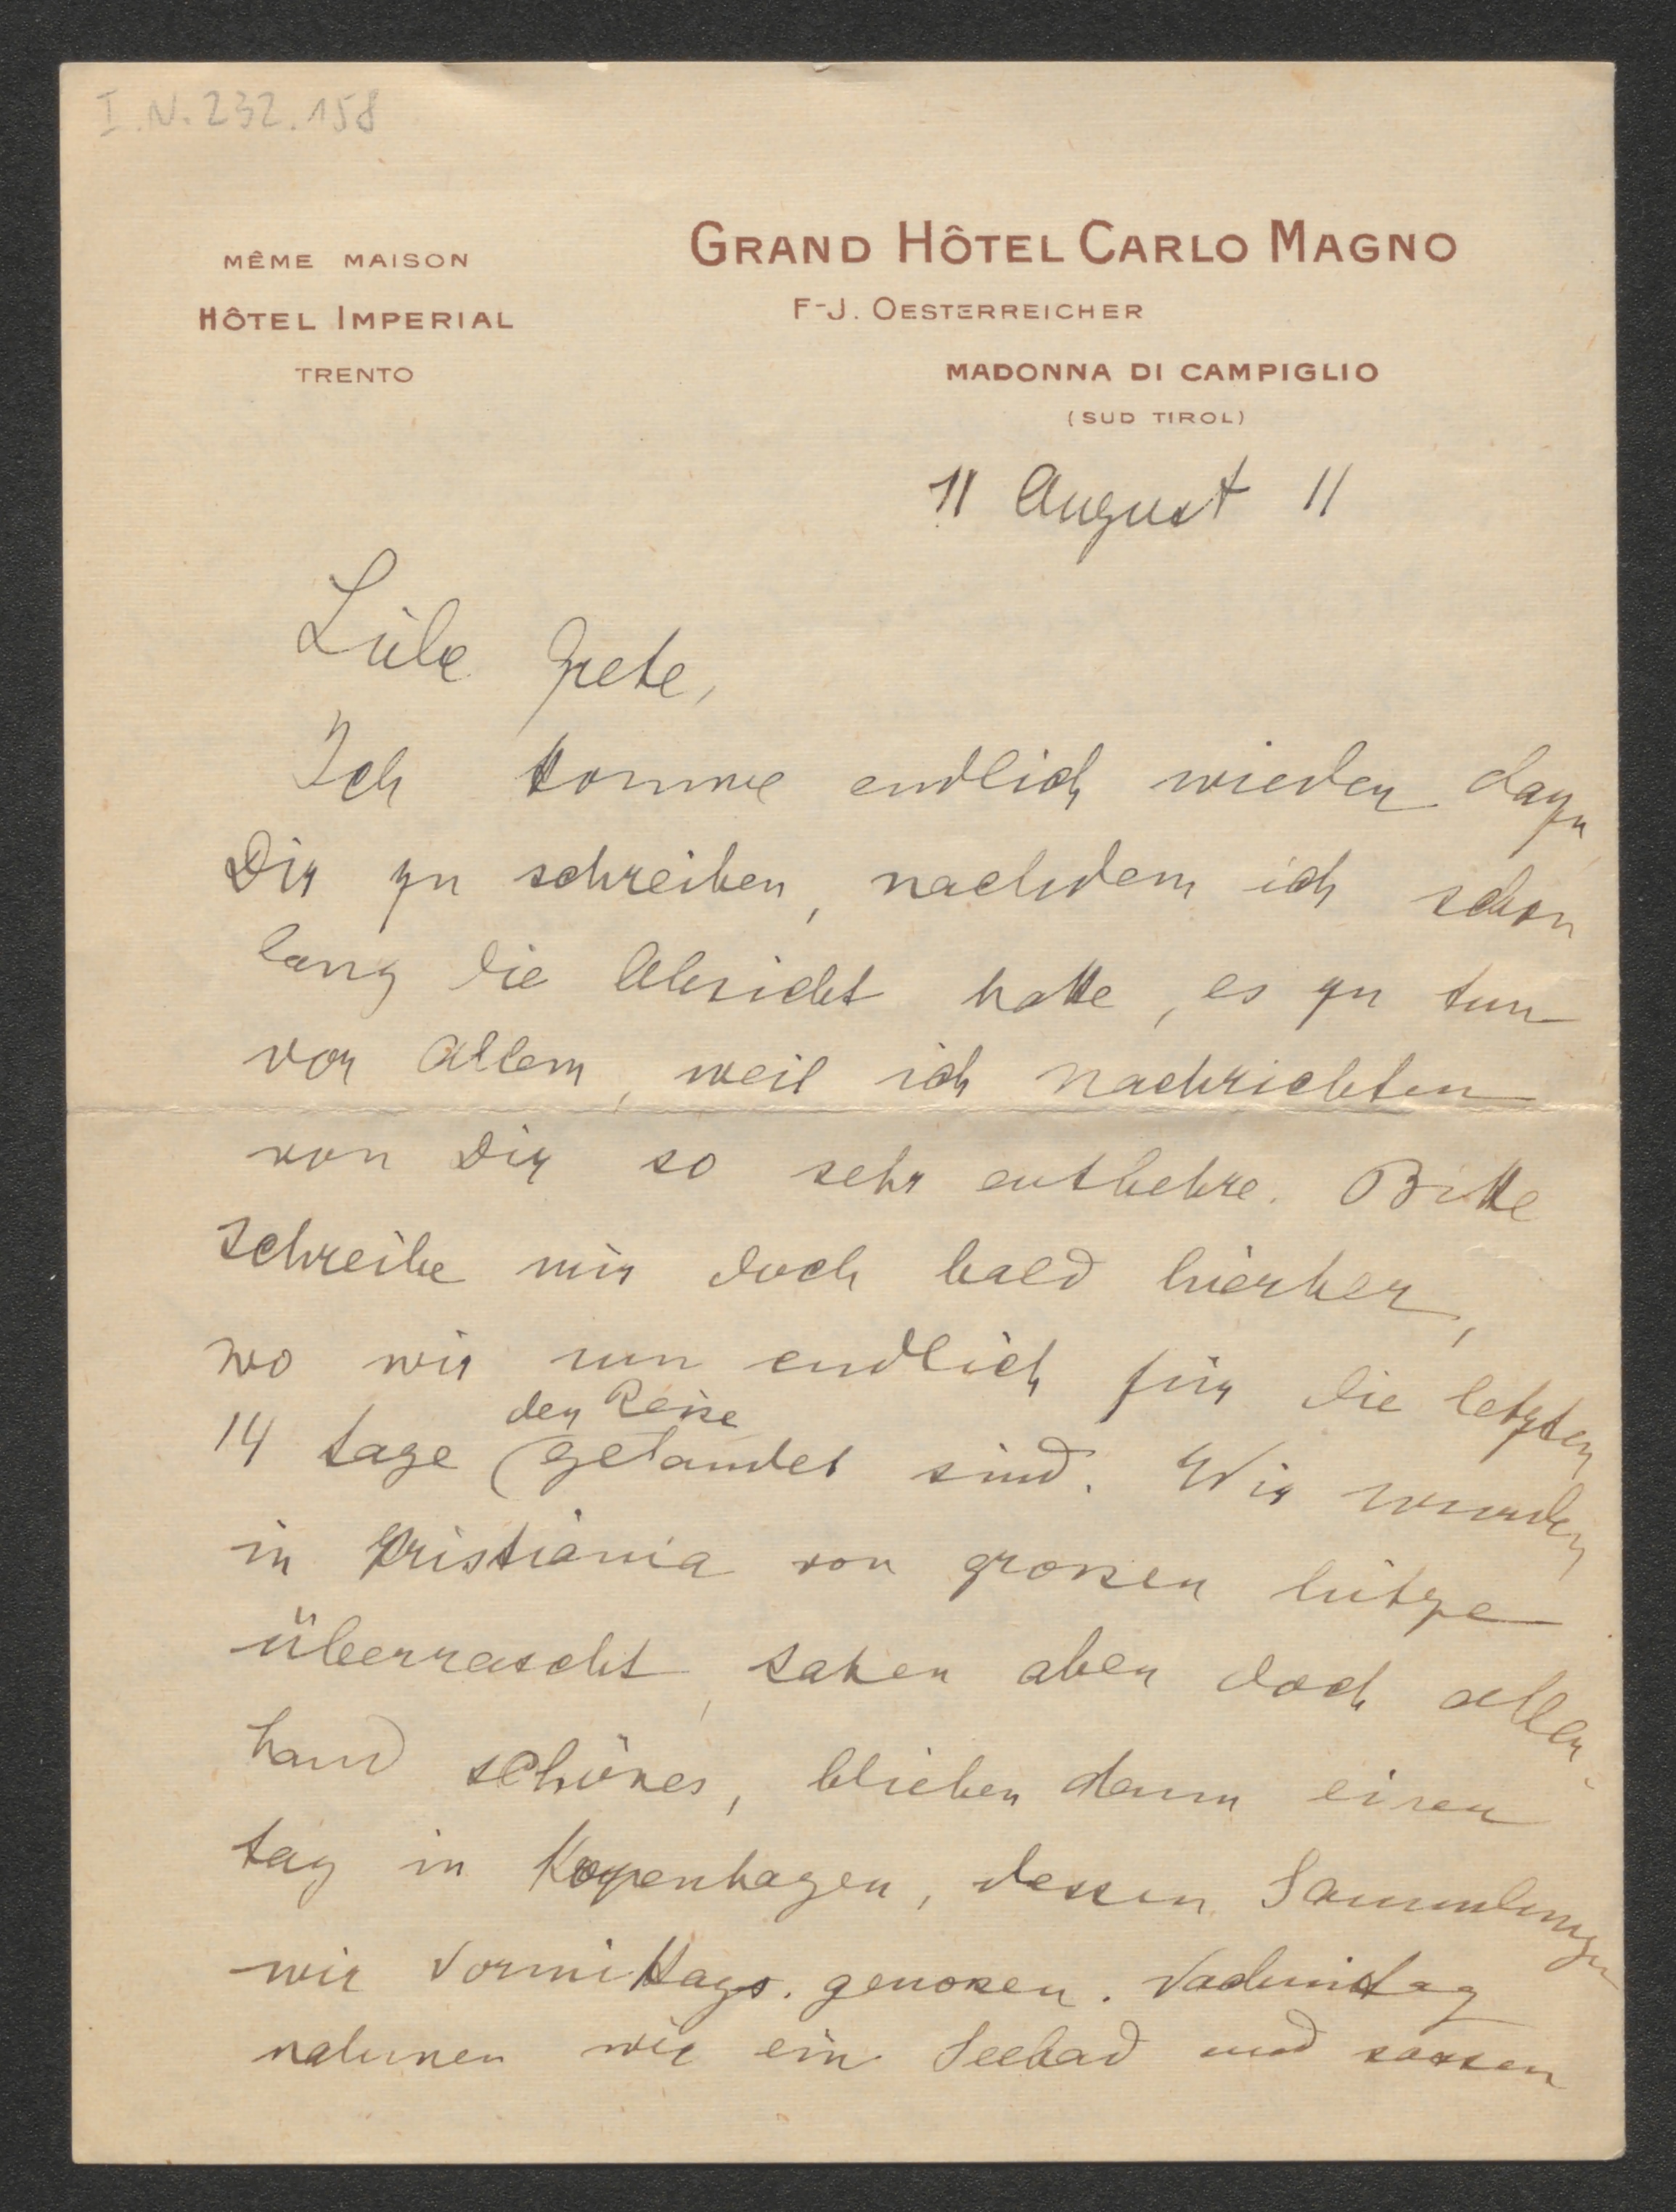 I.N. 232.158
MÊME MAISON
HÔTEL IMPERIAL
TRENTO
GRAND HÔTEL CARLO MAGNO
F-J. OESTERREICHER
MADONNA DI CAMPIGLIO
(SUD TIROL)
11 August 11
Liebe Grete,
Ich komme endlich wieder dazu
Dir zu schreiben, nachdem ich schon
lang die Absicht hatte, es zu tun
vor allem, weil ich nachrichten
von Dir so sehr entbehre. Bitte
schreibe mir doch bald hierher,
wo wir nun endlich für die letzten
der Reise
14 tage (gelandet sind. Wir wurden
in Kristiania von grossen hitze
überrascht, sahen aber doch aller-
hand schönes, blieben dann einen
tag in Kopenhagen, dessen Sammlungen
wir vormittags. genossen. Nachmittag
nahmen wir ein Seebad und sassen